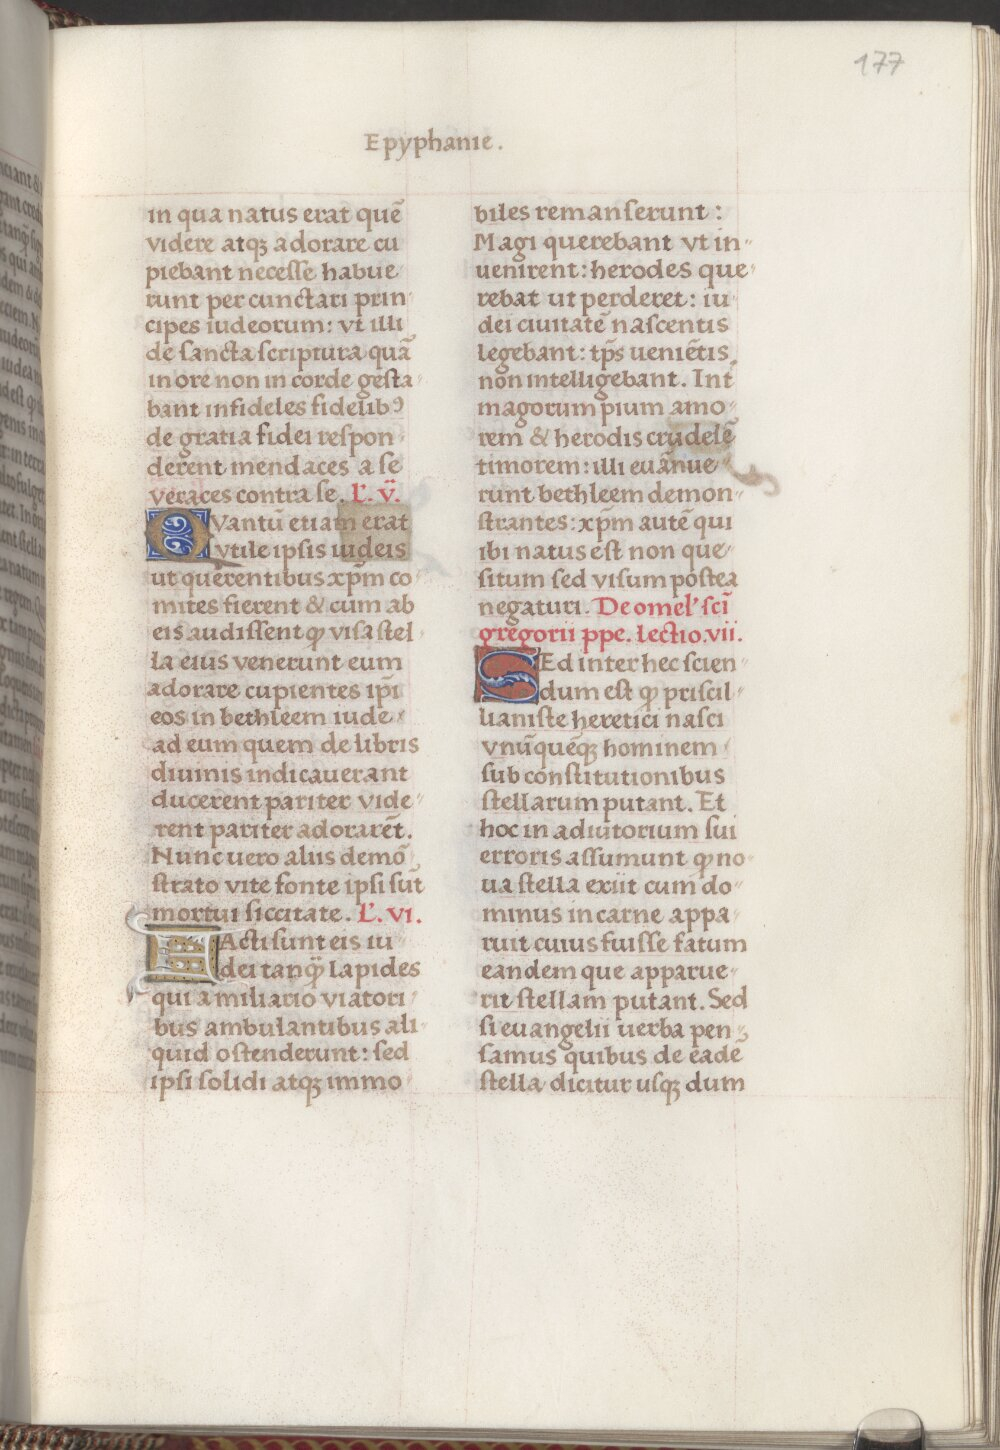 177
Epyphanie.
in qua natus erat quē
videre atqꝫ adorare cu
piebant necesse habue-
runt percunctari prin-
cipes iudeorum: vt illi
de sancta scriptura quā
in ore non in corde gesta-
bant infideles fidelibꝰ
de gratia fidei respon-
derent mendaces a se
veraces contra se. L'. v̈.
QVantū etiam erat
vtile ipsis iudeis
ut querentibus xp̄m co-
mites fierent & cum ab
eis audissent ꝙ visa stel-
la eius venerunt eum
adorare cupientes ip̄i
eos in bethleem iude-
ad eum quem de libris
diuinis indicauerant
ducerent pariter vide-
rent pariter adorarēt.
Nunc uero aliis demō-
strato vite fonte ipsi sūt
mortui siccitate. L'. vi.
FActi sunt eis iu-
dei tanq̄ lapides
qui a miliario viatori-
bus ambulantibus ali-
quid ostenderunt: sed
ipsi solidi atqꝫ immo-
biles remanserunt:
Magi querebant vt in-
uenirent: herodes que-
rebat ut perderet: iu-
dei ciuitatē nascentis
legebant: tp̄s ueniētis
non intelligebant. Int̄
magorum pium amo-
rem & herodis crudelē
timorem: illi euānue-
runt bethleem demon-
strantes: xp̄m autē qui
ibi natus est non que-
situm sed visum postea
negaturi. De omel' sc̄i
gregorii ppe. lectio. vii.
SEd inter hec scien-
dum est ꝙ priscil-
lianiste heretici nasci
vnūquēqꝫ hominem
sub constitutionibus
stellarum putant. Et
hoc in adiutorium sui
erroris assumunt ꝙ no-
ua stella exiit cum do-
minus in carne appa-
ruit cuius fuisse fatum
eandem que apparue-
rit stellam putant. Sed
si euangelii uerba pen-
samus quibus de eadē
stella dicitur usqꝫ dum